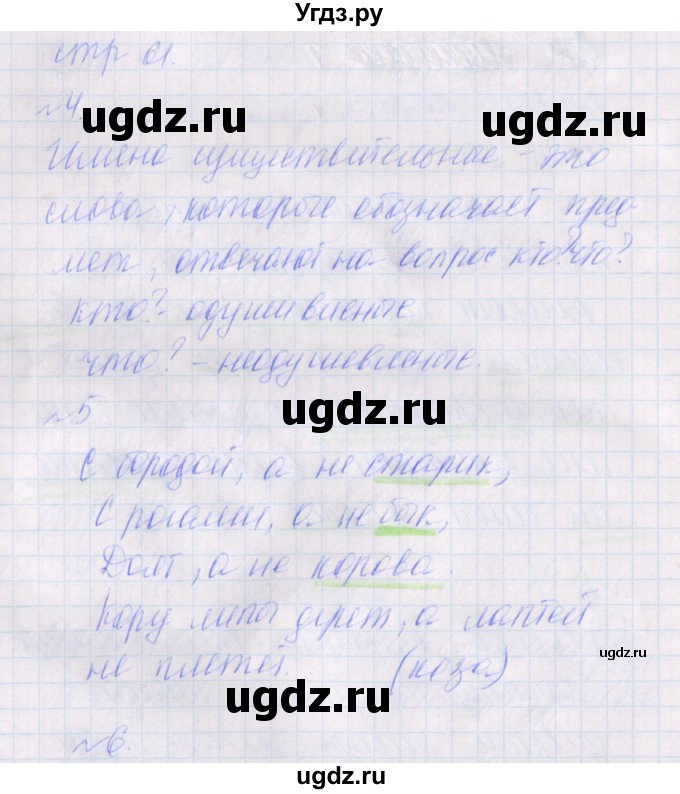 Угдз.ру
стр 61.
№4.
ugdz.ru
Имена существительные - это
слова, которые обозначает пред-
мет, отвечают на вопрос кто? что?
кто? - одушивленые
что? - неодушевленые.
ugdz.ru
№5
С бородой, а не старик,
С рогами, а не бык,
Доят, а не корова.
Кору липы дерет, а лаптей
не плетет. (коза)
ugdz.ru
ugdz.ru
№6.
ugdz.ru